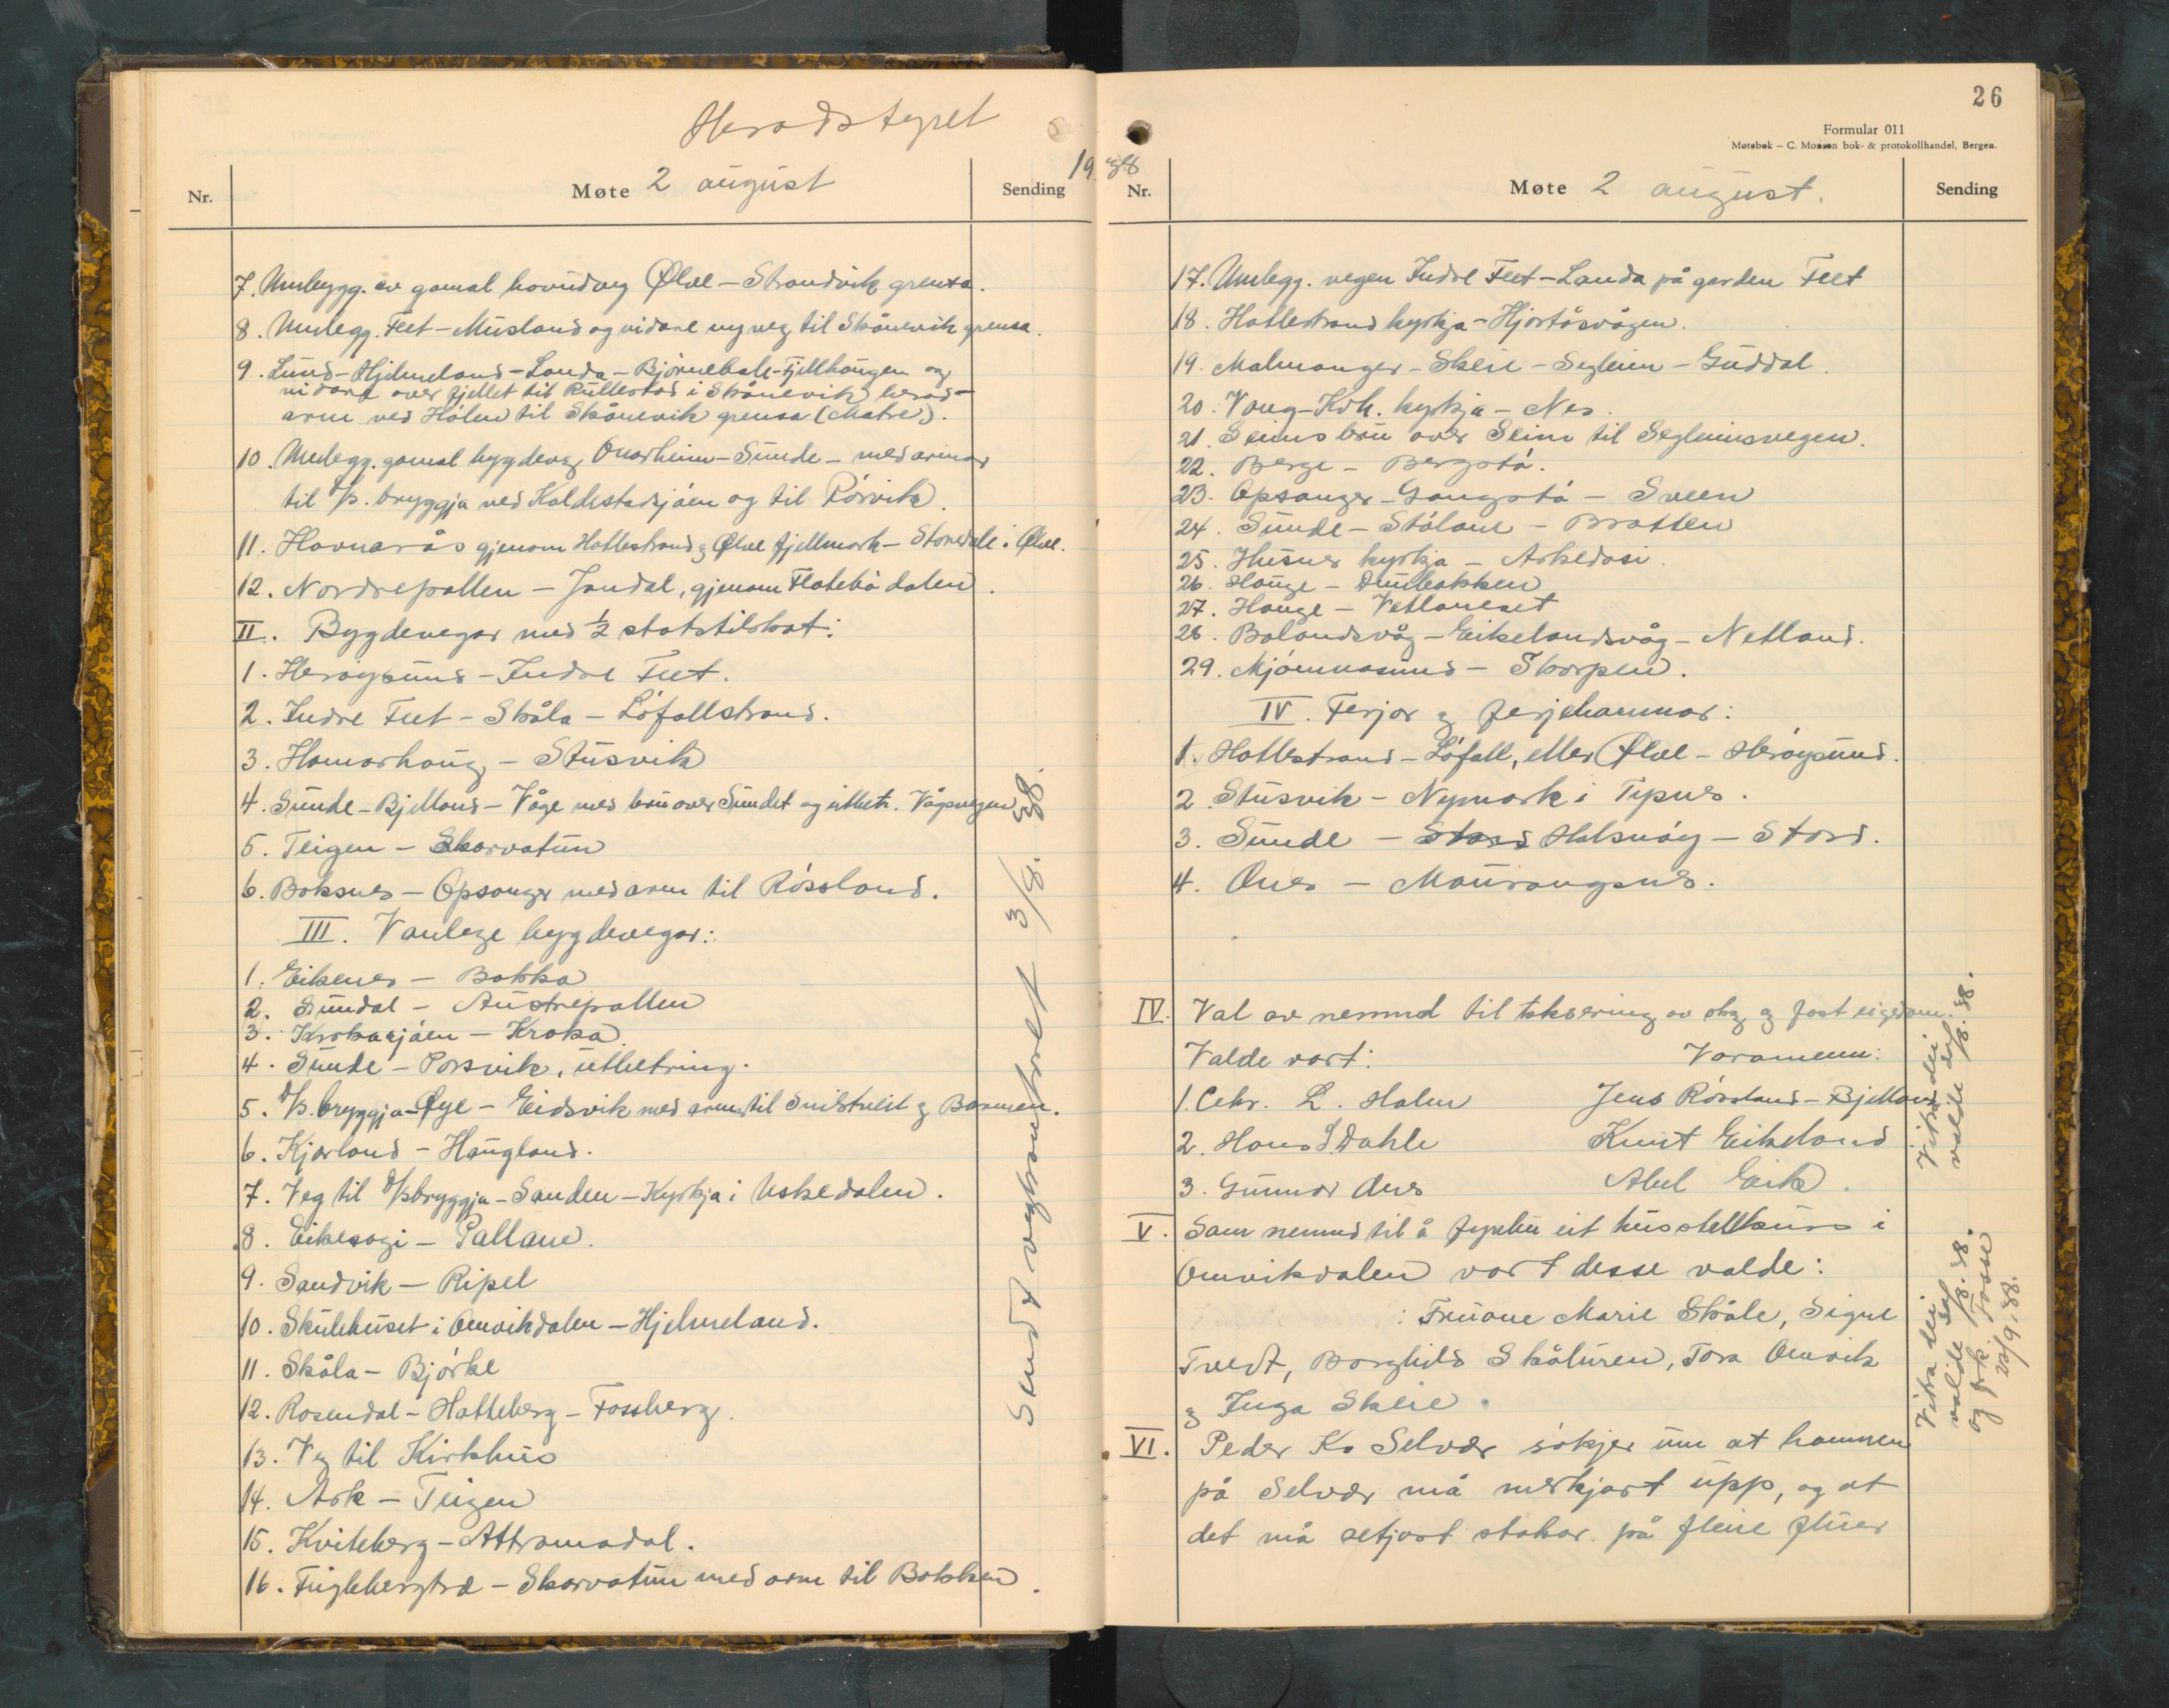 Heradstyret
Nr. Møte 2 august Sending 1938
7. Umbygg. av gamal hovudveg Ølve – Strandvik grensa.
8. Umlegg. Feet – Musland og vidare ny veg til Skånevik grensa.
9. Lund – Hjelmeland – Landa – Bjørnebole – Fjellhaugen og
vidare over fjellet til Rullestad i Skånevik herad –
arm ved Hólen til Skånevik grensa (Matre).
10. Umlegg. gamal bygdeveg Onarheim – Sunde – med armar
til D/S. bryggja ved Kaldestadsjóen og til Pórsvik.
11. Havnarås gjenom Hatlestrand og Ølve fjellmark – Storedale i Ølve.
12. Nordrepollen – Jondal, gjenom Flatebódalen.
II. Bygdevegar med ½ statstilskot:
1. Herøysund – Indre Feet.
2. Indre Feet – Skåla – Lófallstrand.
3. Hamarhaug – Stusvik
4. Sunde – Bjelland – Våge med bru over Sundet og utbetr. Vågsvegen
5. Teigen – Skarvatun
6. Boksnes – Opsanger med arm til Róssland.
III. Vanlege bygdevegar:
1. Eikenes – Bakka
2. Sundal – Austrepollen
3. Krokasjóen – Kroka.
4. Sunde – Porsvik, utbetring.
5. D/S. bryggja – Øye – Eidsvik med armar til Snilstveit og Barmen.
6. Kjærland – Haugland.
7. Veg til D/Sbryggja – Sanden – Kyrkja i Uskedalen.
8. Eikesogi – Pallane.
9. Sandvik – Ripel
10. Skulehuset i Omvikdalen – Hjelmeland.
11. Skåla – Bjórke
12. Rosendal – Hatteberg – Fossberg.
13. Veg til Kirkhus
14. Ask – Teigen
15. Kviteberg – Attramadal.
16. Fuglebergtræ – Skarvatun med arm til Bakken.
Sendt vegkontoret 3/8. 38.
26
Formular 011
Møtebok – C. Monsen bok- & protokollhandel, Bergen.
Nr. Møte 2 august. Sending
17. Umlegg. vegen Indre Feet – Landa på garden Feet
18. Hatlestrand kyrkja – Hjortåsvågen.
19. Malmanger – Skeie – Segleim – Guddal.
20. Vaag – Kvh. kyrkja – Nes.
21. Seims bru over Seim til Segleimsvegen.
22. Berge – Bergstó.
23. Opsanger – Gangstó – Sveen
24. Sunde – Stólane – Bratten
25. Husnes kyrkja – Askedosi.
26. Hauge – Dunbakken
27. Hauge – Vetlaneset
28. Bolandsvåg – Eikelandsvåg – Netland.
29. Mjómnasund – Skorpen.
IV. Ferjor og ferjehamnar:
1. Hatlestrand – Lófall, eller Ølve – Herøysund.
2. Stusvik – Nymark i Tysnes.
3. Sunde – Stord Halsnóy – Stord.
4. Ænes – Maurangsnes.
IV. Val av nemnd til taksering av skog og fast eigedom.
Valde vart: Varamenn:
1. Cehr. L. Halm Jens Róssland – Bjelland
2. Hans S. Dahle Knut Eikeland
3. Gunnar Ænes Abel Eik.
Vitra dei valde 20/8. 38.
V. Sam nemnd til å fyrebu eit husstellkurs i
Omvikdalen vart desse valde:
: Fruone Marie Skåle, Signe
Tvedt, Borghild Skåluren, Tora Omvik
og Inga Skeie.
Vitra dei valde 20/8. 38. og frk. Fosse 23/9. 38.
VI. Peder K. Selvær søkjer um at hamnen
på Selvær må merkjast upp, og at
det må setjast stakar på fleire fluer